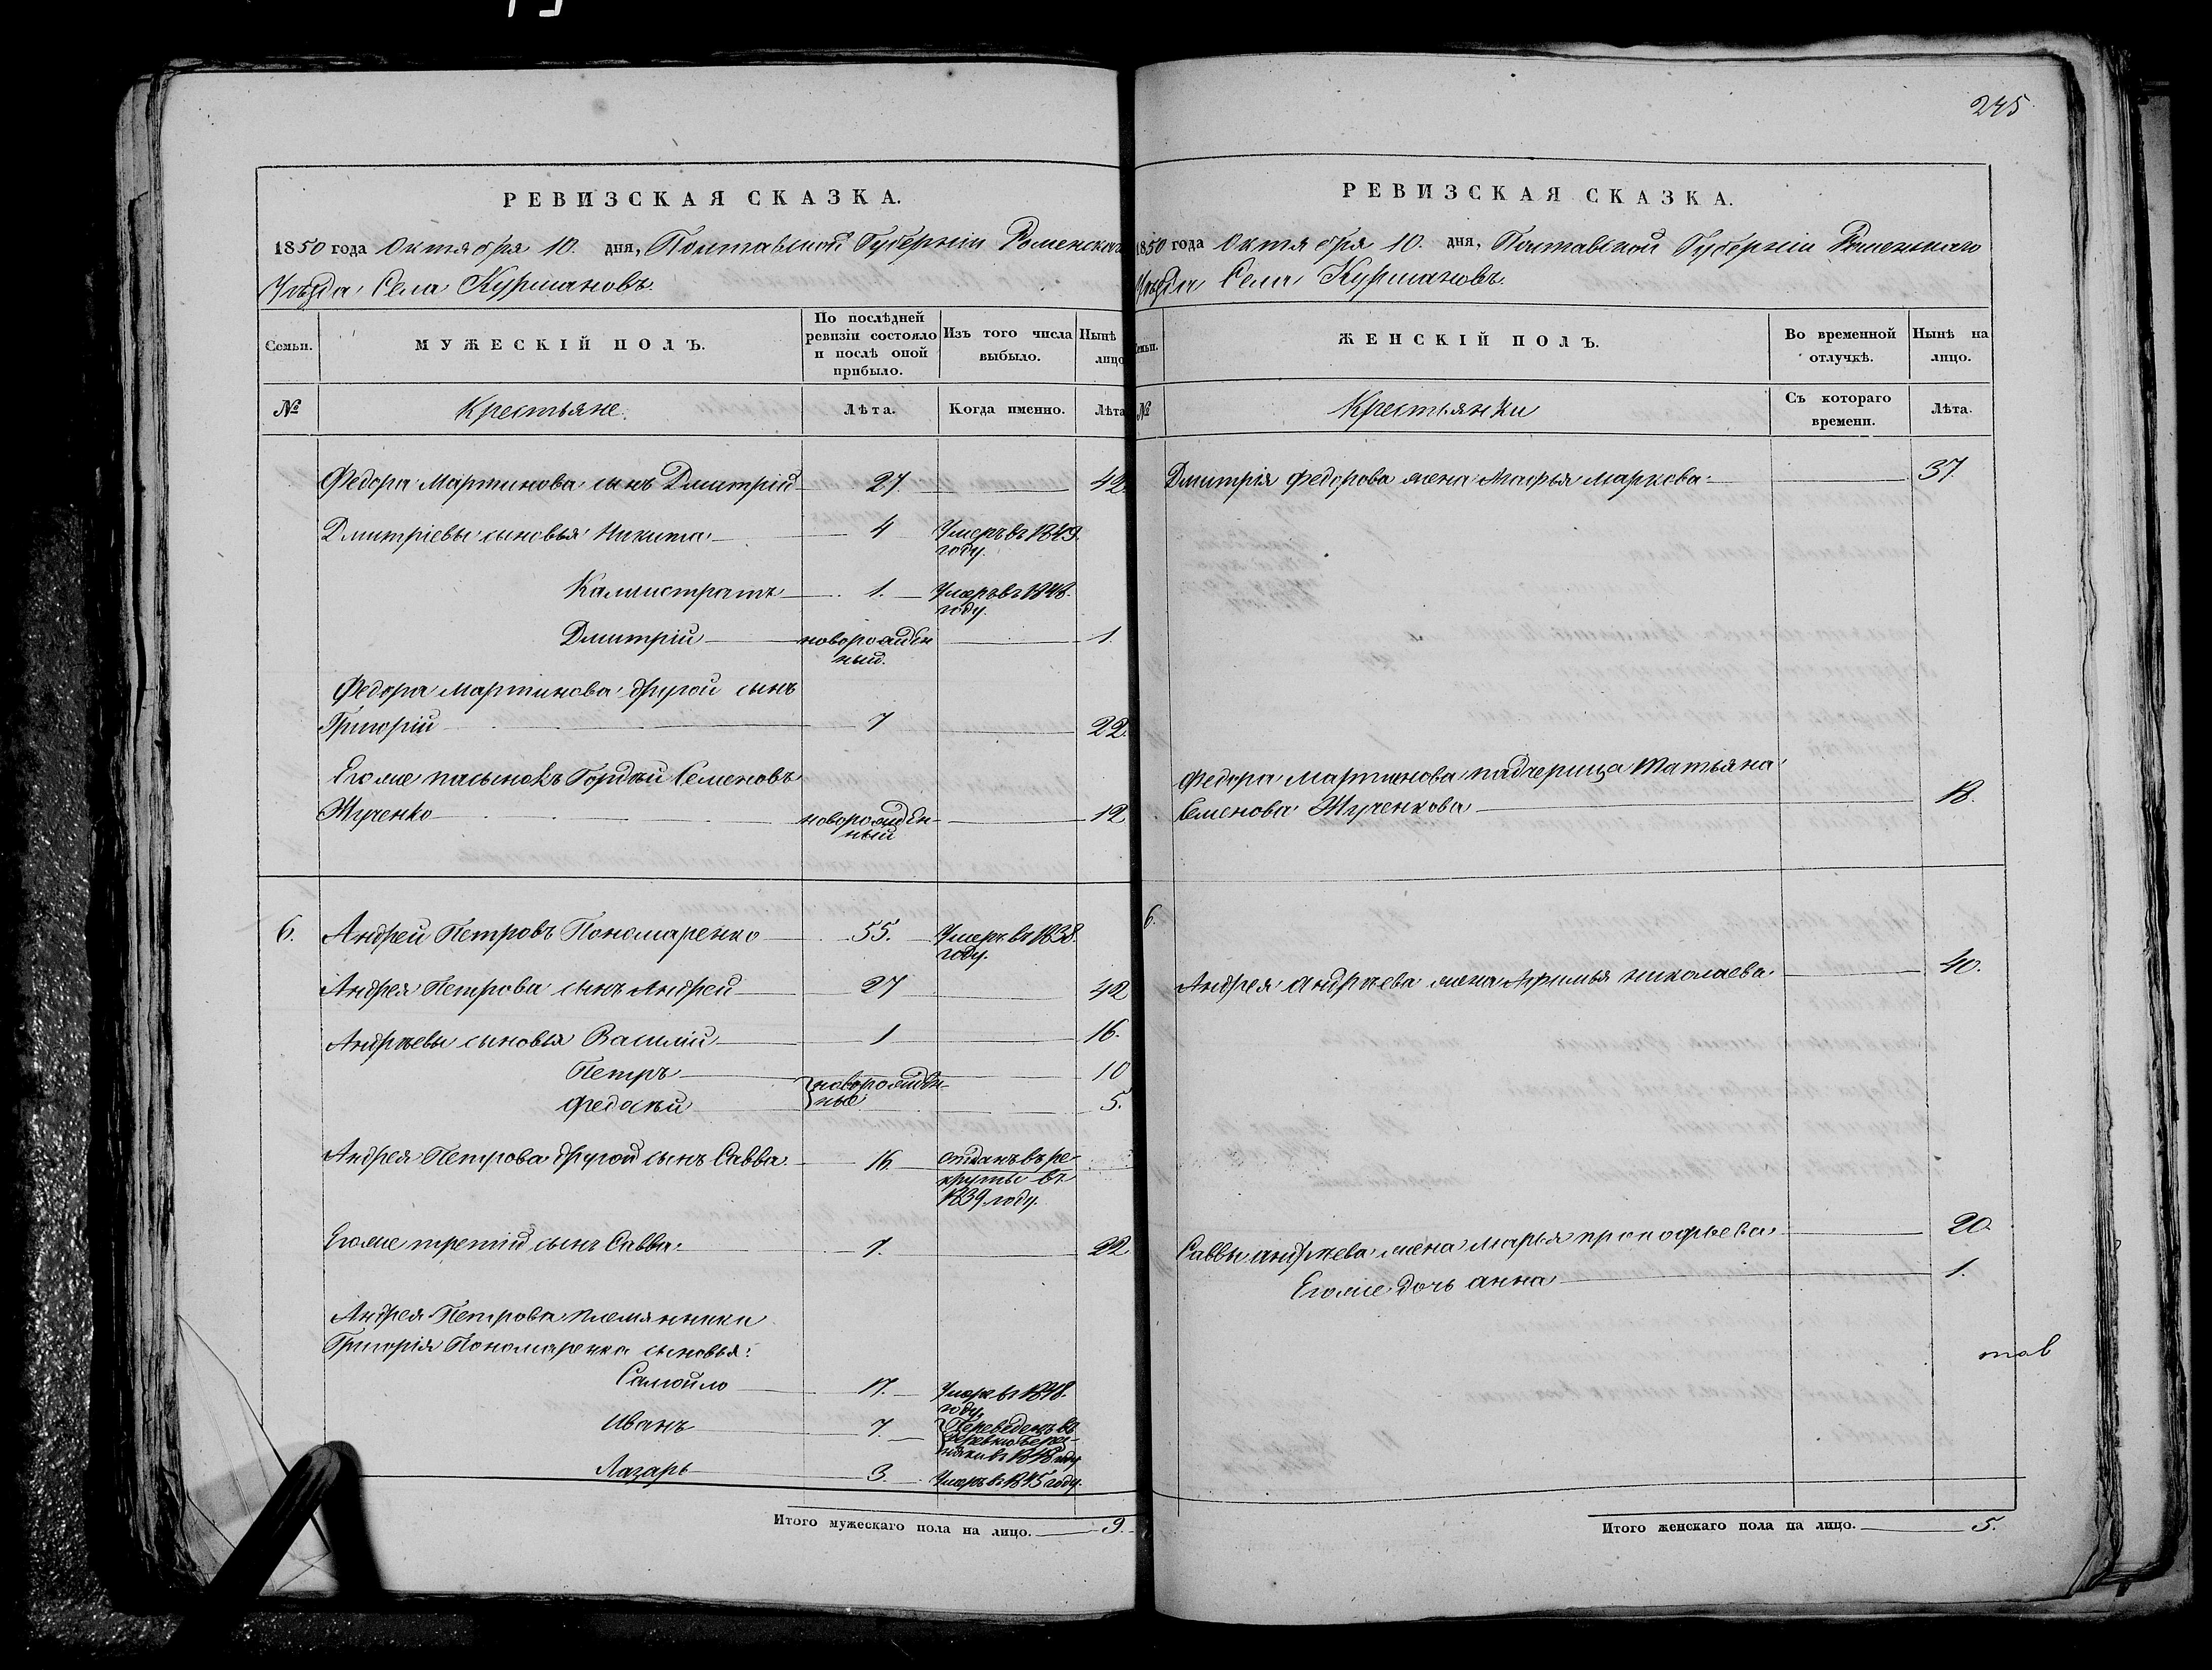 245
РЕВИЗСКАЯ СКАЗКА.
1850 года Октября 10. дня, Полтавской Губерніи Роменскаго
Уѣзда Села Курмановъ.
Семьи.
МУЖЕСКІЙ ПОЛЪ.
По послѣдней ревизіи состояло и послѣ оной прибыло.
Изъ того числа выбыло.
Нынѣ
лицо
№
Крестьяне.
Лѣта.
Когда именно.
Лѣта
Федора Мартинова сынъ Дмитрій 27. 42.
Дмитріевы сыновья Никита 4 Умеръ въ 1849. году.
Каллистратъ 1. Умеръ въ 1848. году.
Дмитрій новорожден ный. 1.
Федора Мартинова другой сынъ
Григорій 7 22.
Егоже пасынокъ Гордѣй Семеновъ
Жученко новорожден ный 12
6. Андрей Петровъ Пономаренко 55. Умеръ въ 1838. году.
Андрея Петрова сынъ Андрей 27 42
Андрѣевы сыновья Василій 1 16.
Петръ новорожден- 10
Федосѣй ные 5.
Андрея Петрова другой сынъ Савва 16 отданъ въ ре- круты въ 1839 году.
Егоже третій сынъ Савва 7. 22
Андрея Петрова племянники
Григорія Пономаренка сыновья:
Самойло 17. Умеръ въ 1848. году.
Иванъ 7. Переведенъ въ деревню в 1848 году
Лазарь 3. Умеръ въ 1845 году.
Итого мужескаго пола на лицо. 9.
РЕВИЗСКАЯ СКАЗКА.
1850 года Октября 10. дня, Полтавской Губерніи Роменскаго
Уѣзда Села Курмановъ.
ЖЕНСКІЙ ПОЛЪ.
Во временной отлучкѣ.
Нынѣ на лицо.
№
Крестьянки
Съ котораго времени.
Лѣта.
Дмитрія Федорова жена Агафья Маркова 37.
Федора Мартинова падчерица Татьяна
Семенова Жученкова 18.
6.
Андрея Андрѣева жена Афимья Николаева 40.
Саввы Андрѣева жена Марья Прокофьева 20
Егоже дочь Анна 1.
Итого женскаго пола на лицо. 5.